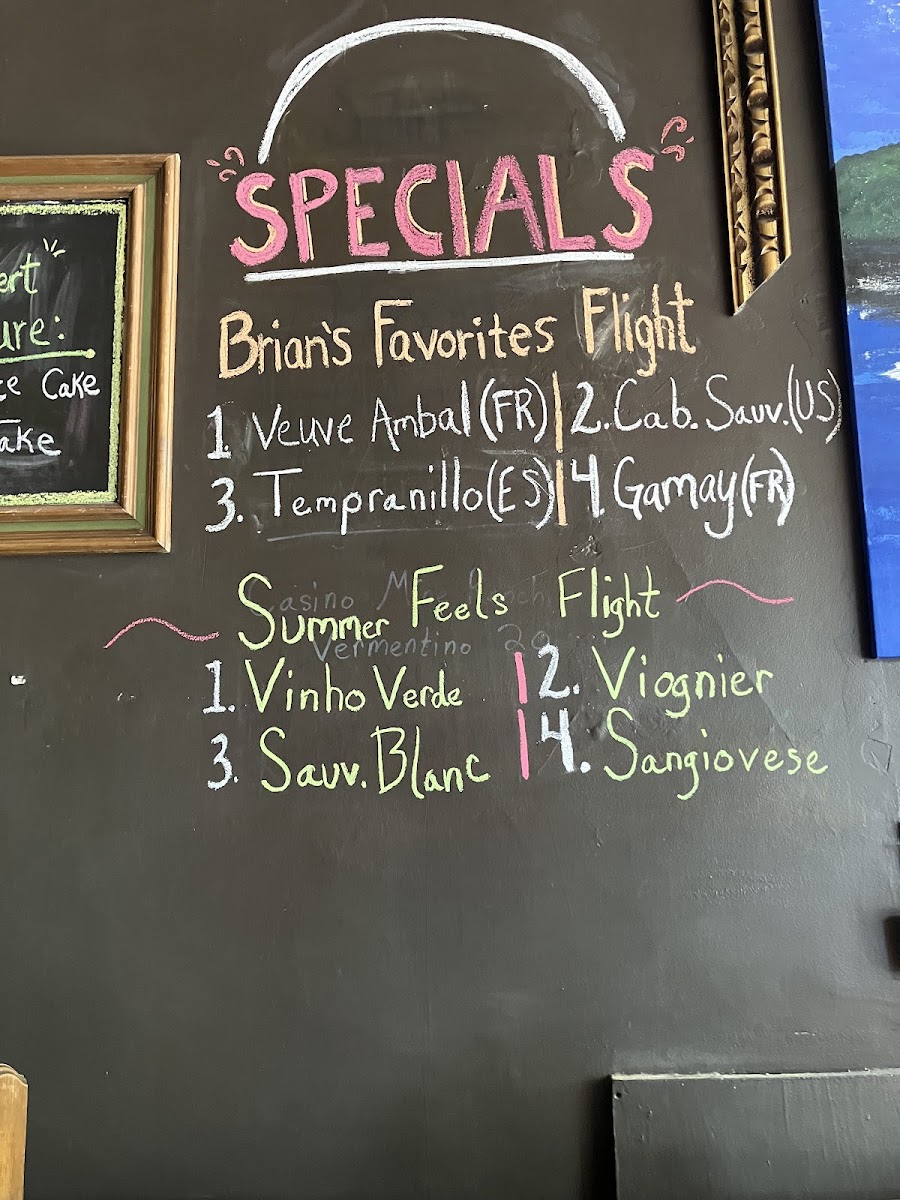 SPECIALS
Brian's Favorites Flight
1 Veuve Ambal (FR) | 2. Cab. Sauv. (US)
3. Tempranillo (ES) | 4. Gamay (FR)
Summer Feels Flight
1. Vinho Verde | 2. Viognier
3. Sauv. Blanc | 4. Sangiovese
Casino
Vermentino
ert
ure:
Cake
ake